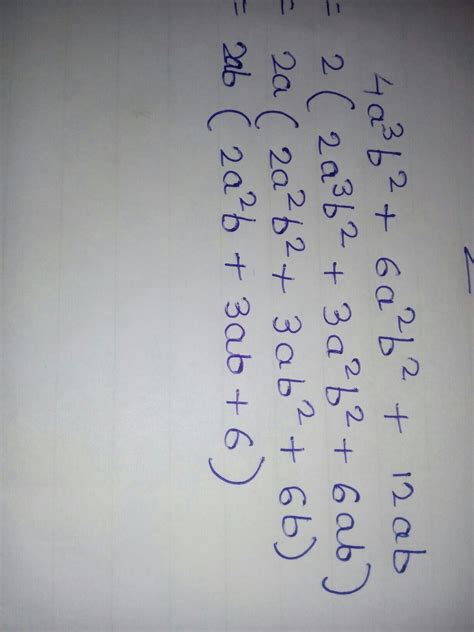 4a³b² + 6a²b² + 12ab
= 2 ( 2a³b² + 3a²b² + 6ab)
= 2a ( 2a²b² + 3ab² + 6b)
= 2ab ( 2a²b + 3ab + 6)